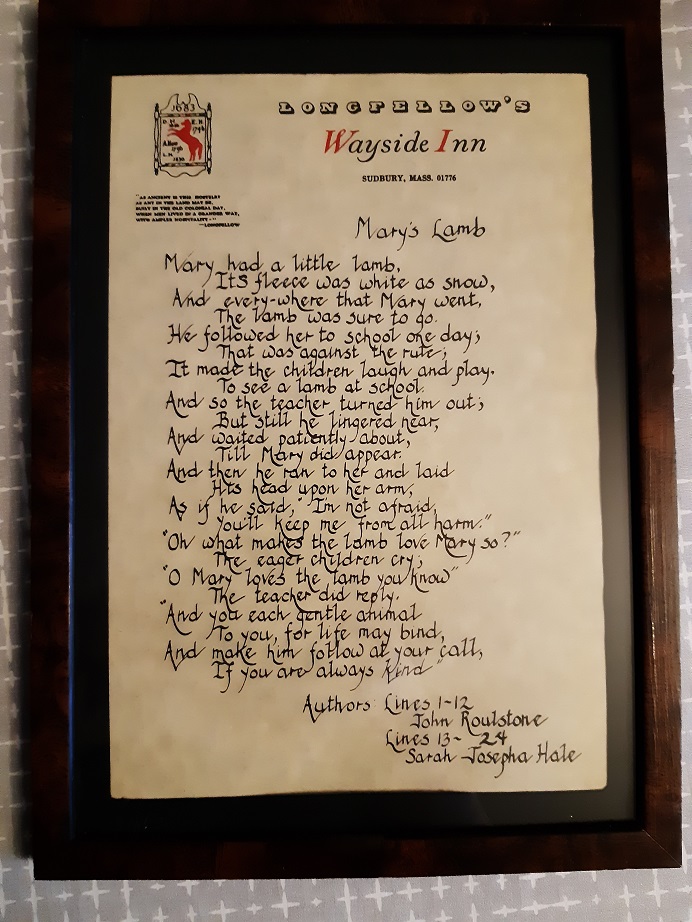 1683
D. H.
1716
E. H.
1746
A. How
1796
L. H.
1830
LONGFELLOW'S
Wayside Inn
SUDBURY, MASS. 01776
"AS ANCIENT IS THIS HOSTELRY
AS ANY IN THE LAND MAY BE,
BUILT IN THE OLD COLONIAL DAY,
WHEN MEN LIVED IN A GRANDER WAY,
WITH AMPLER HOSPITALITY-"
—LONGFELLOW
Mary's Lamb
Mary had a little lamb,
Its fleece was white as snow,
And every-where that Mary went,
The lamb was sure to go.
He followed her to school one day;
That was against the rule;
It made the children laugh and play.
To see a lamb at school.
And so the teacher turned him out;
But still he lingered near,
And waited patiently about,
Till Mary did appear.
And then he ran to her and laid
His head upon her arm,
As if he said, "I'm not afraid,
You'll keep me from all harm."
"Oh what makes the lamb love Mary so?"
The eager children cry;
"O Mary loves the lamb you know"
The teacher did reply.
"And you each gentle animal
To you, for life may bind,
And make him follow at your call,
If you are always kind"
Authors: Lines 1-12
John Roulstone
Lines 13-24
Sarah Josepha Hale